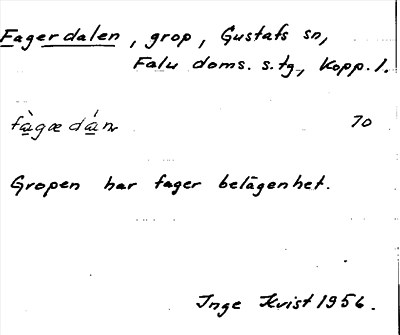 Fagerdalen, grop, Gustafs sn,
Falu doms. s. tg., Kopp. l.
70
Gropen har fager belägenhet.
Inge Kvist 1956.